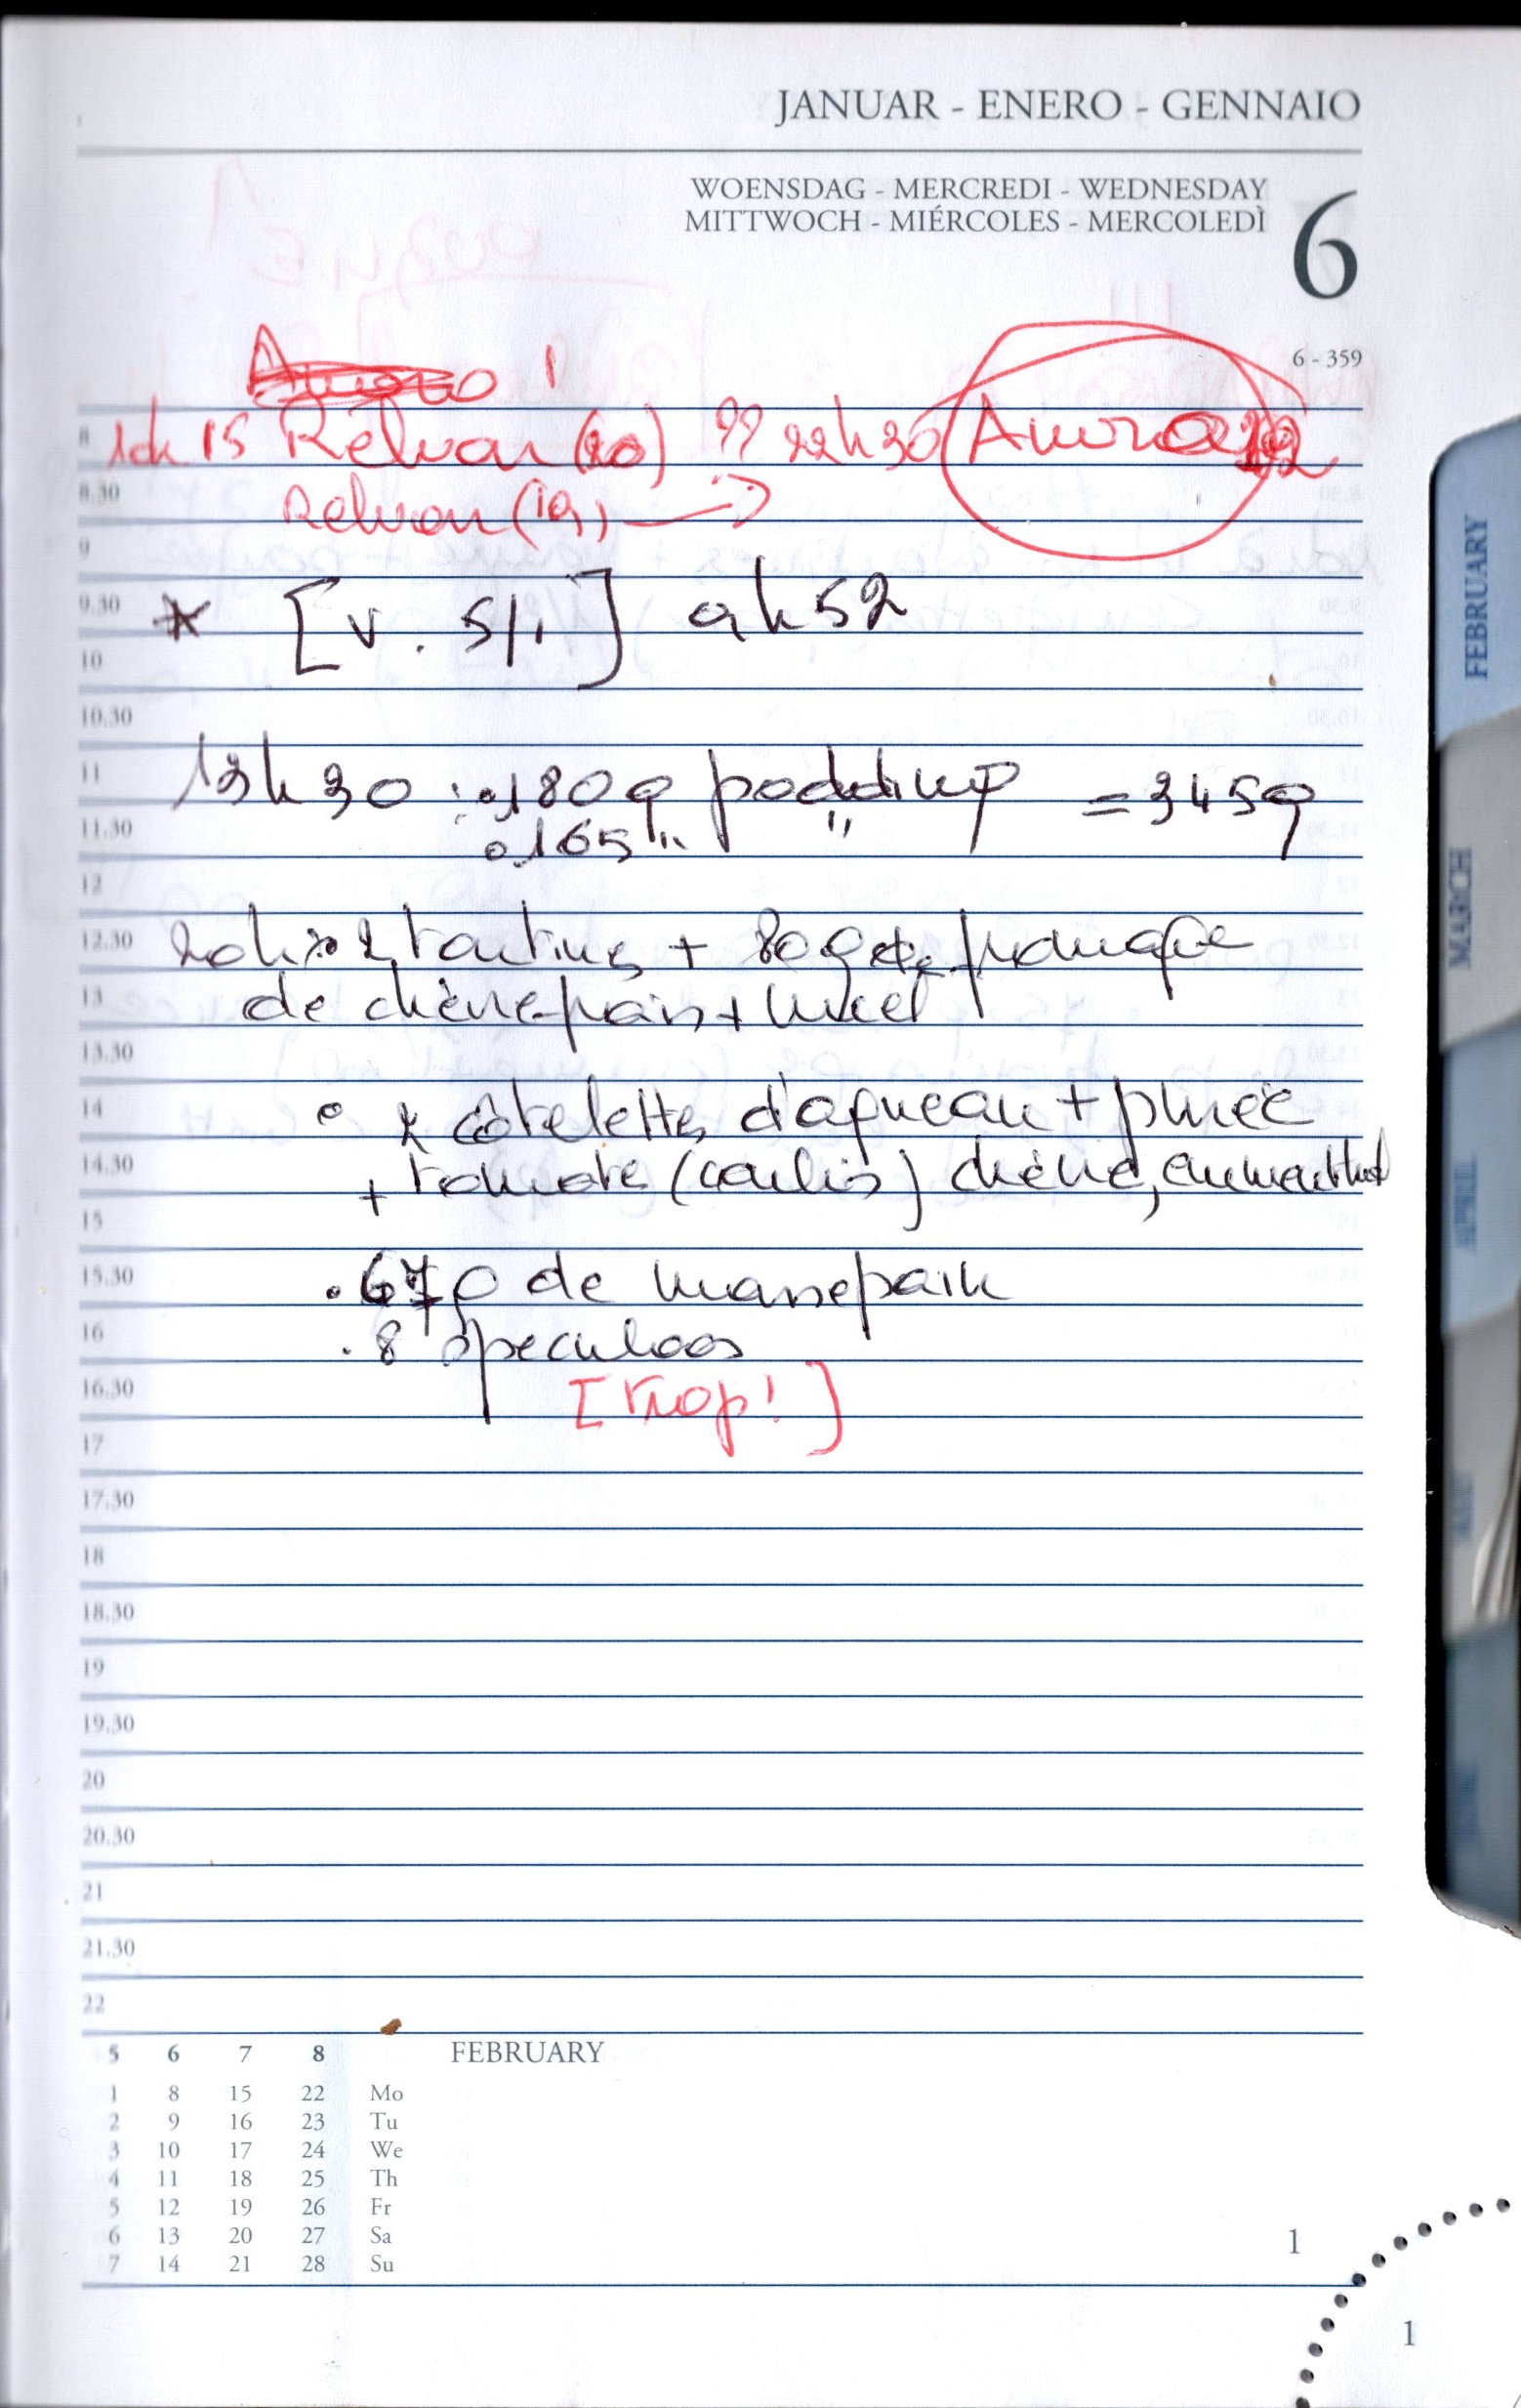 JANUAR - ENERO - GENNAIO
WOENSDAG - MERCREDI - WEDNESDAY
MITTWOCH - MIÉRCOLES - MERCOLEDÌ
6
6 - 359
15 Relvon (20) ?? 22h30
8
Relvon (19) →
8.30
9
* [v. 5/1] 9h52
9.30
10
10.30
13h30 : 180g podding = 345g
11
165 " "
11.30
12
2 tartines + 80g de fromage
12.30
de chèvre frais + miel
13
13.30
côtelettes d'agneau + purée
14
+ tomate (coulis) chèvre, emmenthal
14.30
15
. 67g de massepain
15.30
. 8 speculoos
16
[trop!]
16.30
17
17.30
18
18.30
19
19.30
20
20.30
21
21.30
22
5 6 7 8 FEBRUARY
1 8 15 22 Mo
2 9 16 23 Tu
3 10 17 24 We
4 11 18 25 Th
5 12 19 26 Fr
6 13 20 27 Sa
7 14 21 28 Su
1
1
FEBRUARY
MARCH
APRIL